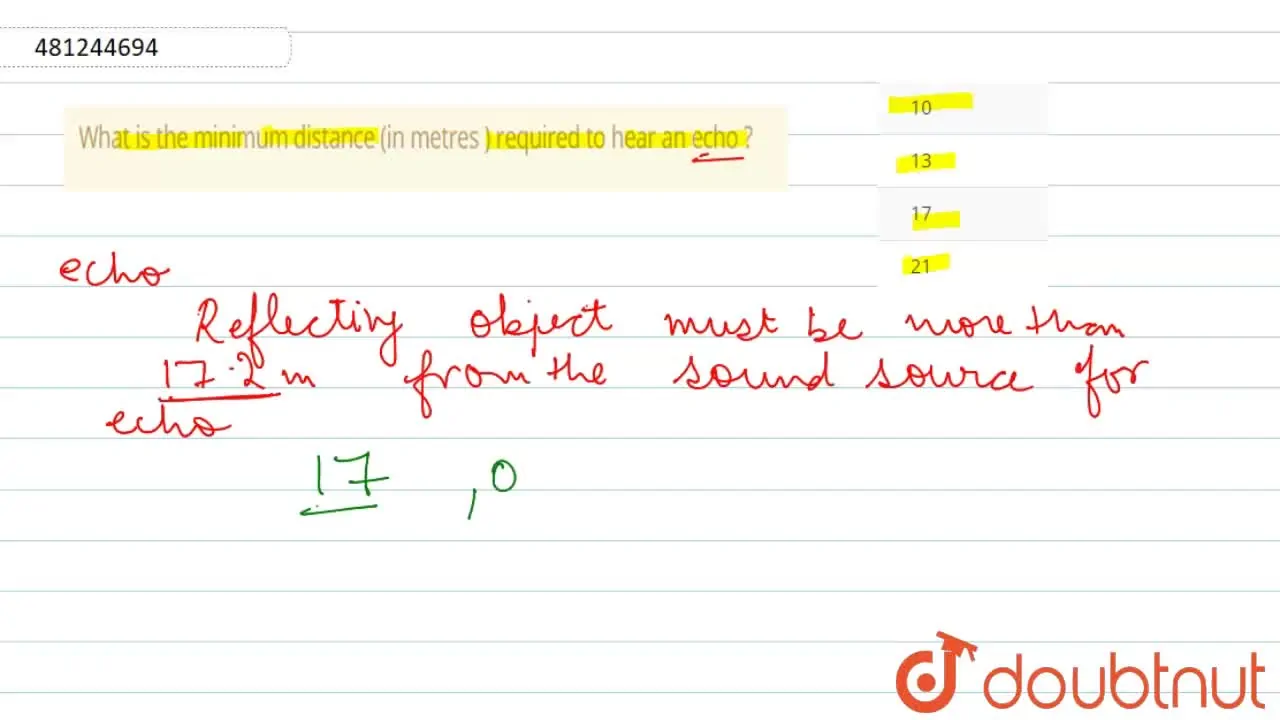 481244694
What is the minimum distance (in metres ) required to hear an echo ?
10
13
17
21
echo
Reflecting object must be more than
17.2 m from the sound source for
echo
17 , 0
doubtnut